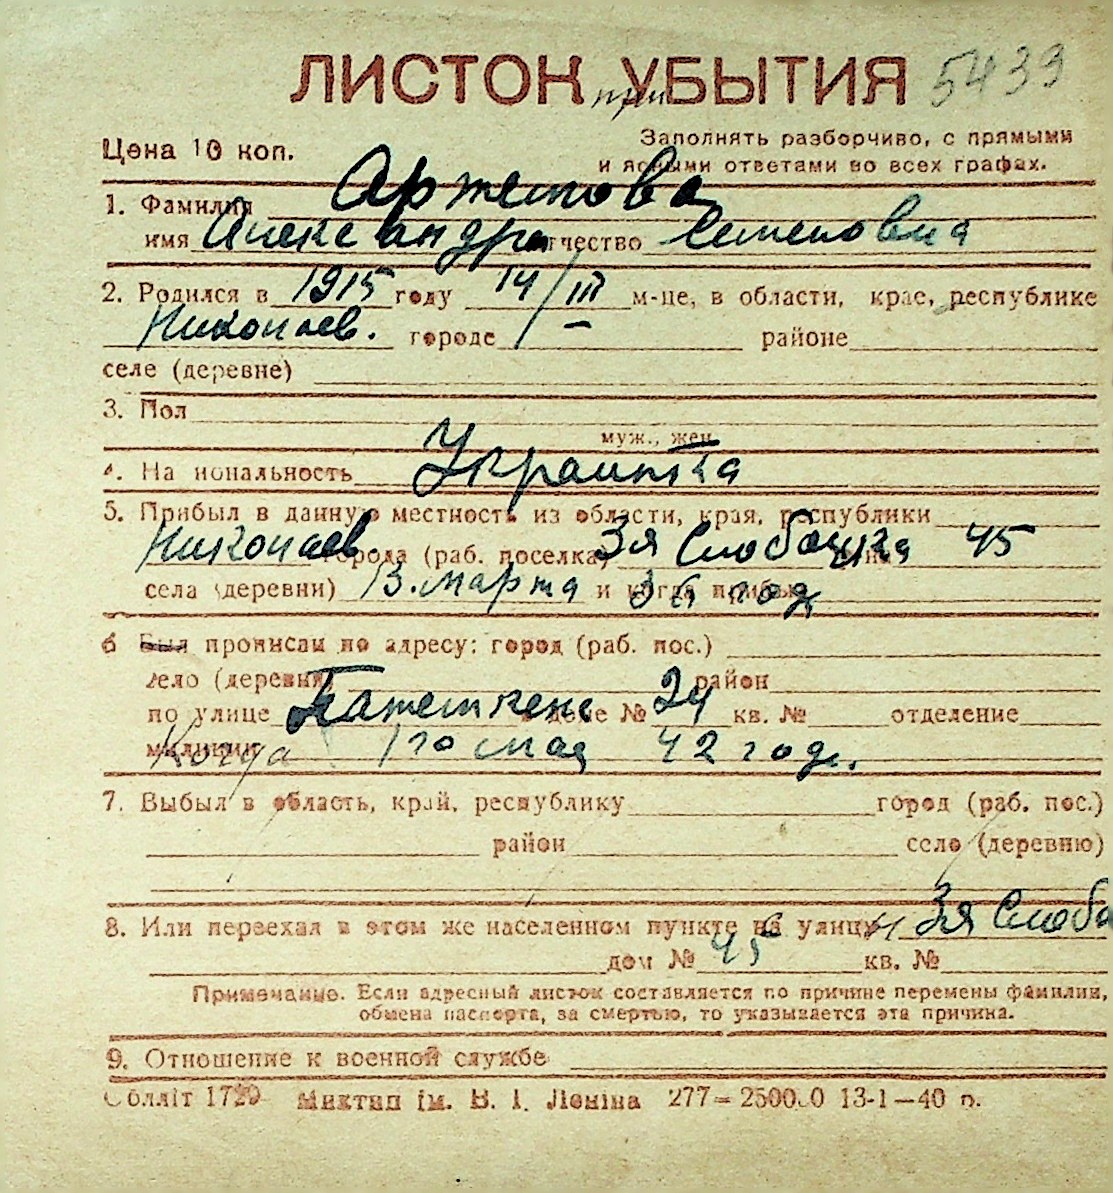 ЛИСТОК при УБЫТИЯ 5433
Цена 10 коп.
Заполнять разборчиво, с прямыми
и ясными ответами во всех графах.
1. Фамилия
имя Александра отчество Семеновна
2. Родился в 1915 году 14/III м-це, в области, крае, республике
Николаев. городе районе
селе (деревне)
3. Пол
муж., жен.
4. Национальность Украинка
5. Прибыл в данную местность из области, края, республики
Николаев города (раб. поселка) 3я Слободка 45
села (деревни) 13. марта и когда прибыл 36 год
6 Был прописан по адресу: город (раб. пос.)
село (деревня) район
по улице в доме № 24 кв. № отделение
милиции Когда 1го мая 42 годе.
7. Выбыл в область, край, республику город (раб. пос.)
район село (деревню)
8. Или переехал в этом же населенном пункте на улицу 3я Слобо
дом № 45 кв. №
Примечание. Если адресный листок составляется по причине перемены фамилии,
обмена паспорта, за смертью, то указывается эта причина.
9. Отношение к военной службе
Облліт 1729 Миктип ім. В. І. Леніна 277—250000 13-1—40 р.